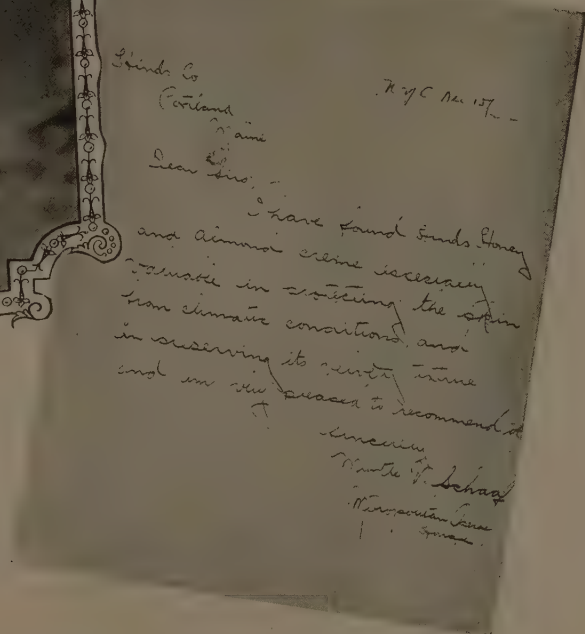 Hinds Co
Portland
Maine
N.Y.C Dec 15/
Dear Sirs,
I have found Hinds Honey
and Almond Creme especially
valuable in protecting the skin
from climatic conditions and
in preserving its
and am pleased to recommend it
Sincerely
Myrtle Schaaf
Metropolitan Opera
House